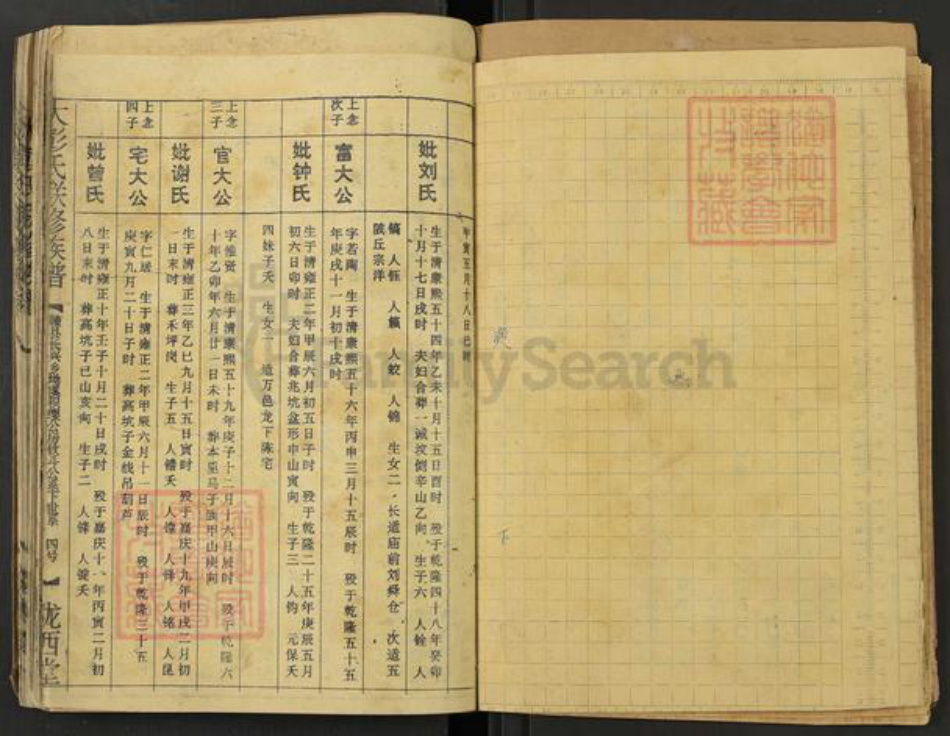 年寅五月十八日巳时
妣刘氏
生于清康熙五十四年乙未十月十五日酉时 殁于乾隆四十八年癸卯
十月十七日戌时 夫妇合葬一诚坟侧辛山乙向 生子六 人铨 人
镐 人钰 人 人 人锦 生女二 长适庙前刘舜仓 次适五
陂丘宗洋
上念
次子
富大公
字若陶 生于清康熙五十六年丙申三月十五辰时 殁于乾隆五十五
年庚戌十一月初十戌时
妣钟氏
生于清雍正二年甲辰六月初五日子时 殁于乾隆二十五年庚辰五月
初六日卯时 夫妇合葬兆坑盆形申山寅向 生子三 人钧 元保夭
四妹子夭 生女一 适万邑龙下陈宅
上念
三子
官大公
字惟贤 生于清康熙五十九年庚子十二月十六日辰时 殁于乾隆六
十年乙卯年六月廿一日未时 葬本里马子 甲山庚向
妣谢氏
生于清雍正三年乙巳九月十五日寅时 殁于嘉庆十九年甲戌二月初
一日未时 葬禾坪岗 生子五 人 夭 人 人铎 人铭 人昆
上念
四子
宅大公
字仁居 生于清雍正二年甲辰六月十一日辰时 殁于乾隆三十五
庚寅九月二十日子时 葬高坑子金线吊葫芦
妣曾氏
生于清雍正十年壬子十月二十日戌时 殁于嘉庆十一年丙寅二月初
八日未时 葬高坑子巳山亥向 生子二 人锋 人 夭
大彭氏联修族谱
四号
陇西堂
FamilySearch
下